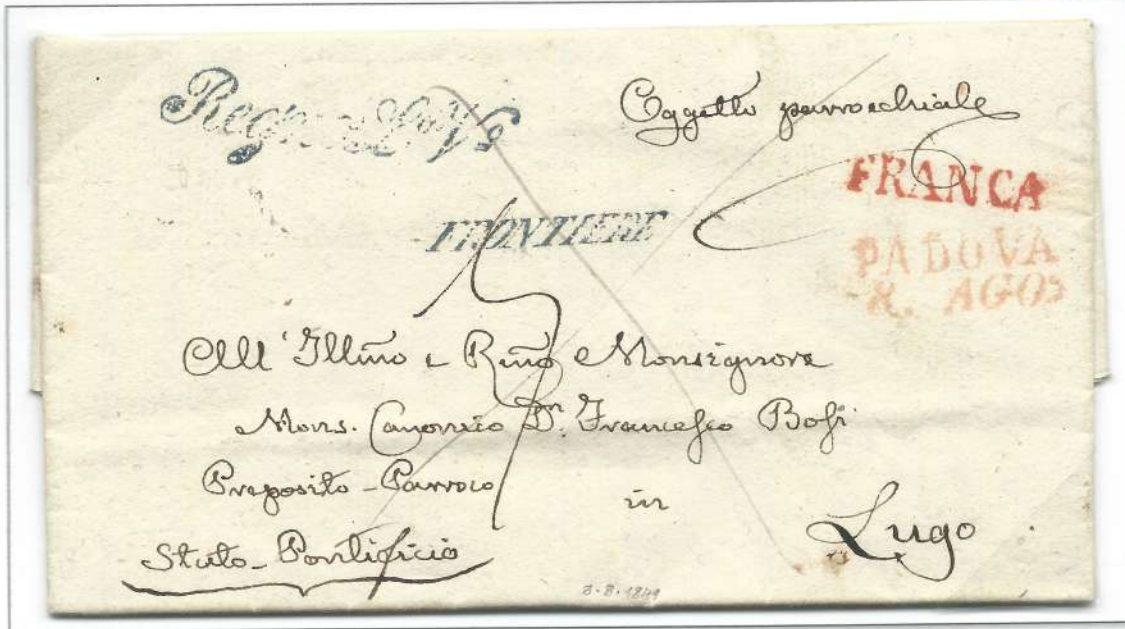 Regno L. V.
Oggetto parrocchiale
FRANCA
FRONTIERE
PADOVA
8. AGOS
All' Illmo e Rmo Monsignore
Mons. Canonico Dn. Francesco Bosi
Preposito - Parroco
in
Lugo
Stato - Pontificio